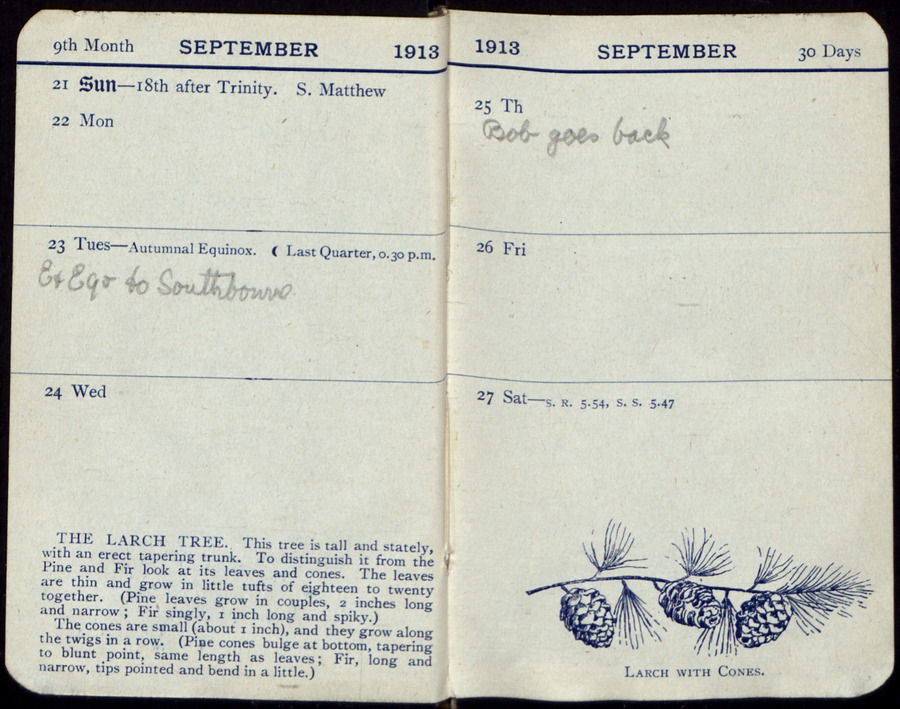 9th Month SEPTEMBER 1913
21 Sun—18th after Trinity. S. Matthew
22 Mon
23 Tues—Autumnal Equinox. ☾ Last Quarter, 0.30 p.m.
to Southbourne
24 Wed
THE LARCH TREE. This tree is tall and stately,
with an erect tapering trunk. To distinguish it from the
Pine and Fir look at its leaves and cones. The leaves
are thin and grow in little tufts of eighteen to twenty
together. (Pine leaves grow in couples, 2 inches long
and narrow; Fir singly, 1 inch long and spiky.)
The cones are small (about 1 inch), and they grow along
the twigs in a row. (Pine cones bulge at bottom, tapering
to blunt point, same length as leaves; Fir, long and
narrow, tips pointed and bend in a little.)
1913 SEPTEMBER 30 Days
25 Th
Bob goes back
26 Fri
27 Sat—S. R. 5.54, S. S. 5.47
LARCH WITH CONES.